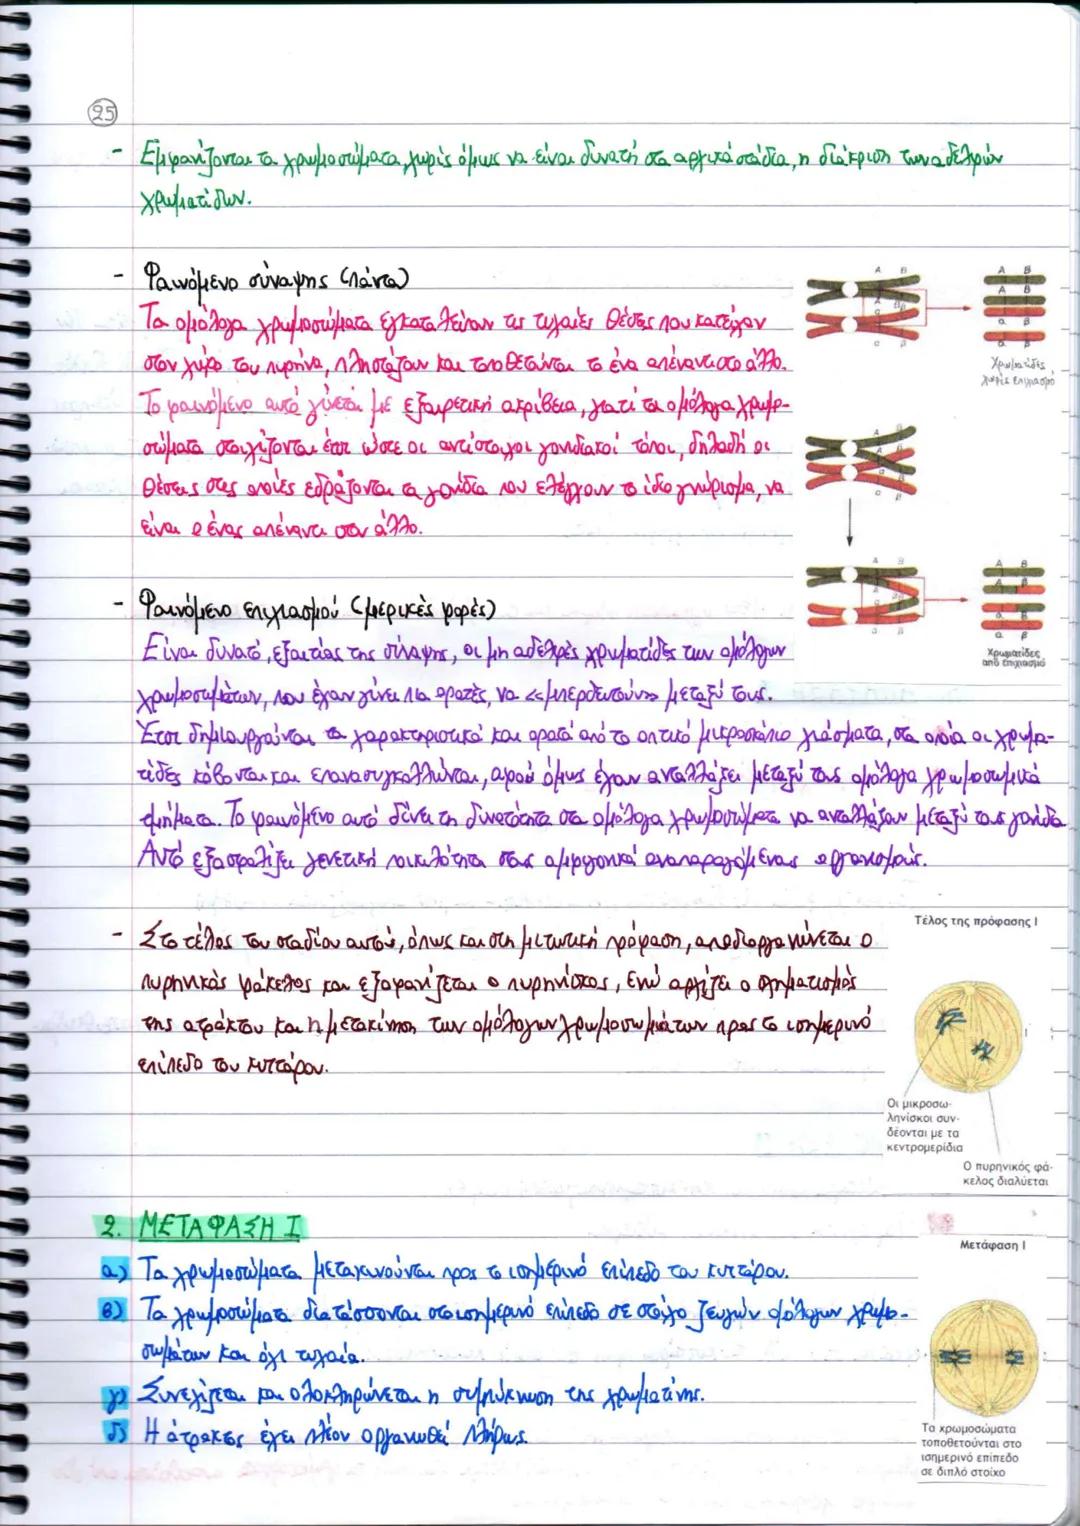 25
- Εμφανίζονται τα χρωμοσώματα, χωρίς όμως να είναι δυνατή στα αρχικά στάδια, η διάκριση των αδελφών
χρωματίδων.
- Φαινόμενο σύναψης (πάντα)
Τα ομόλογα χρωμοσώματα εγκαταλείπουν τις τυχαίες θέσεις που κατείχαν
στον χώρο του πυρήνα, πλησιάζουν και τοποθετούνται το ένα απέναντι στο άλλο.
Το φαινόμενο αυτό γίνεται με εξαιρετική ακρίβεια, γιατί τα ομόλογα χρωμο-
σώματα στοιχίζονται έτσι ώστε οι αντίστοιχοι γονιδιακοί τόποι, δηλαδή οι
θέσεις στις οποίες εδράζονται τα γονίδια που ελέγχουν το ίδιο γνώρισμα, να
είναι ο ένας απέναντι στον άλλο.
A B
A B
A B
α β
α β
Χρωματίδες
χωρίς επιχιασμό
- Φαινόμενο επιχιασμού (μερικές φορές)
Είναι δυνατό, εξαιτίας της σύναψης, οι μη αδελφές χρωματίδες των ομόλογων
χρωμοσωμάτων, που έχουν γίνει πια ορατές, να <<μπερδευτούν>> μεταξύ τους.
Έτσι δημιουργούνται τα χαρακτηριστικά και ορατά από το οπτικό μικροσκόπιο χιάσματα, στα οποία οι χρωμα-
τίδες κόβονται και επανασυγκολλώνται, αφού όμως έχουν ανταλλάξει μεταξύ τους ομόλογα χρωμοσωμικά
τμήματα. Το φαινόμενο αυτό δίνει τη δυνατότητα στα ομόλογα χρωμοσώματα να ανταλλάσουν μεταξύ τους γονίδια
Αυτό εξασφαλίζει γενετική ποικιλότητα στους αμφιγονικά αναπαραγόμενους οργανισμούς.
A B
α β
Χρωματίδες
από επιχιασμό
- Στο τέλος του σταδίου αυτού, όπως και στη μιτωτική πρόφαση, αποδιοργανώνεται ο
πυρηνικός φάκελος και εξαφανίζεται ο πυρηνίσκος, ενώ αρχίζει ο σχηματισμός
της ατράκτου και η μετακίνηση των ομόλογων χρωμοσωμάτων προς το ισημερινό
επίπεδο του κυττάρου.
Τέλος της πρόφασης Ι
Οι μικροσω-
ληνίσκοι συν-
δέονται με τα
κεντρομερίδια
Ο πυρηνικός φά-
κελος διαλύεται
2. ΜΕΤΑΦΑΣΗ Ι
α) Τα χρωμοσώματα μετακινούνται προς το ισημερινό επίπεδο του κυττάρου.
β) Τα χρωμοσώματα διατάσσονται στο ισημερινό επίπεδο σε στοίχο ζευγών ομόλογων χρωμο-
σωμάτων και όχι τυχαία.
γ) Συνεχίζεται και ολοκληρώνεται η συμπύκνωση της χρωματίνης.
δ) Η άτρακτος έχει πλέον οργανωθεί πλήρως.
Μετάφαση Ι
Τα χρωμοσώματα
τοποθετούνται στο
ισημερινό επίπεδο
σε διπλό στοίχο